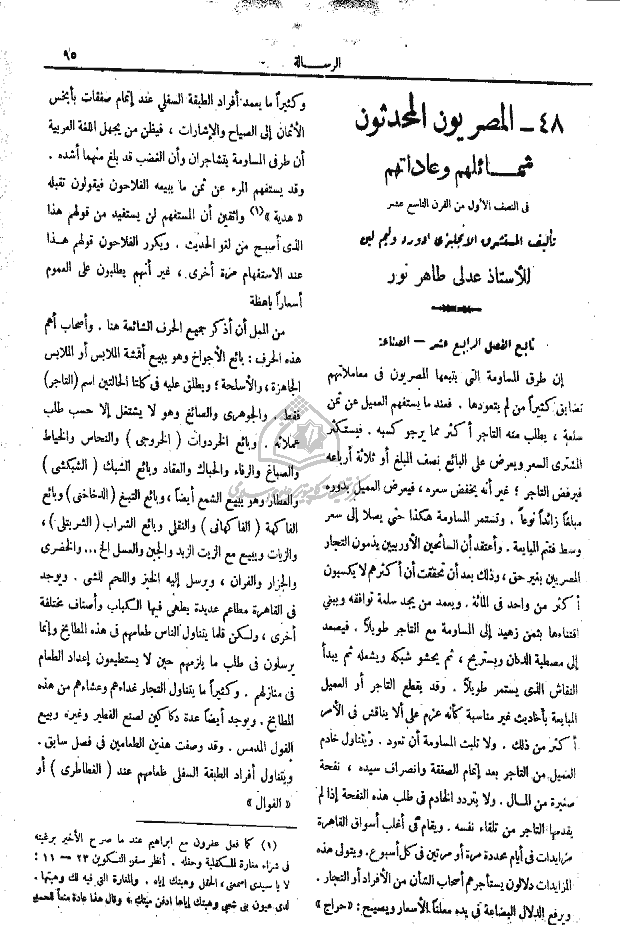 الرسالة
٩٥
٤٨ - المصريون المحدثون
شمائلهم وعاداتهم
فى النصف الأول من القرن التاسع عشر
تأليف المستشرق الانجليزى ادورد وليم لين
للأستاذ عدلى طاهر نور
تابع الفصل الرابع عشر - الصناعة
إن طرق المساومة التى يتبعها المصريون فى معاملاتهم
تضايق كثيراً من لم يتعودها . فعند ما يستفهم العميل عن ثمن
سلعة ، يطلب منه التاجر أكثر مما يرجو كسبه . فيستكثر
المشترى السعر ويعرض على البائع نصف المبلغ أو ثلاثة أرباعه
فيرفض التاجر ؛ غير أنه يخفض سعره ، فيعرض العميل بدوره
مبلغاً زائداً نوعاً . وتستمر المساومة هكذا حتى يصلا إلى سعر
وسط فتتم المبايعة . وأعتقد أن السائحين الأوربيين يذمون التجار
المصريين بغير حق ، وذلك بعد أن تحققت أن أكثرهم لا يكسبون
أكثر من واحد فى المائة . ويعمد من يجد سلعة توافقه ويبغى
اقتناءها بثمن زهيد إلى المساومة مع التاجر طويلاً . فيصعد
إلى مصطبة الدكان ويستريح ، ثم يحشو شبكه ويشعله ثم يبدأ
النقاش الذى يستمر طويلاً . وقد يقطع التاجر أو العميل
المبايعة بأحاديث غير مناسبة كأنه عزم على ألا يناقش فى الأمر
أكثر من ذلك . ولا تلبث المساومة أن تعود . ويتناول خادم
العميل من التاجر بعد إتمام الصفقة وانصراف سيده ، نفحة
صغيرة من المال . ولا يتردد الخادم فى طلب هذه النفحة إذا لم
يقدمها التاجر من تلقاء نفسه . ويقام فى أغلب أسواق القاهرة
مزايدات فى أيام محددة مرة أو مرتين فى كل أسبوع . ويتولى هذه
المزايدات دلالون يستأجرهم أصحاب الشأن من الأفراد أو التجار .
ويرفع الدلال البضاعة فى يده معلناً الأسعار ويصيح : « حراج »
وكثيراً ما يعمد أفراد الطبقة السفلى عند إتمام صفقات بأبخس
الأثمان إلى الصياح والإشارات ، فيظن من يجهل اللغة العربية
أن طرفى المساومة يتشاجران وأن الغضب قد بلغ منهما أشده .
وقد يستفهم المرء عن ثمن ما يبيعه الفلاحون فيقولون تقبله
« هدية »(١) واثقين أن المستفهم لن يستفيد من قولهم هذا
الذى أصبح من لغو الحديث . ويكرر الفلاحون قولهم هذا
عند الاستفهام مرة أخرى ، غير أنهم يطلبون على العموم
أسعاراً باهظة
من الممل أن أذكر جميع الحرف الشائعة هنا . وأصحاب أهم
هذه الحرف : بائع الأجواخ وهو يبيع أقمشة الملابس أو الملابس
الجاهزة ، والأسلحة ؛ ويطلق عليه فى كلتا الحالتين اسم (التاجر)
فقط . والجوهرى والصائغ وهو لا يشتغل إلا حسب طلب
عملائه . وبائع الخردوات ( الخردجى ) والنحاس والخياط
والصباغ والرفاء والحباك والعقاد وبائع الشبك ( الشبكشى )
والعطار وهو يبيع الشمع أيضاً ، وبائع التبغ (الدخاخنى) وبائع
الفاكهة ( الفاكهانى ) والنقلى وبائع الشراب ( الشربتلى ) ،
والزيات ويبيع مع الزيت الزبد والجبن والعسل الخ... والخضرى
والجزار والفران ، ويرسل إليه الخبز واللحم للشى . ويوجد
فى القاهرة مطاعم عديدة يطهى فيها الكباب وأصناف مختلفة
أخرى ، ولكن قلما يتناول الناس طعامهم فى هذه المطابخ وإنما
يرسلون فى طلب ما يلزمهم حين لا يستطيعون إعداد الطعام
فى منازلهم . وكثيراً ما يتناول التجار غداءهم وعشاءهم من هذه
المطابخ . ويوجد أيضاً عدة دكاكين لصنع الفطير وغيره وبيع
الفول المدمس . وقد وصفت هذين الطعامين فى فصل سابق .
ويتناول أفراد الطبقة السفلى طعامهم عند ( الفطاطرى ) أو
« الفوال »
(١) كما فعل عفرون مع ابراهيم عند ما صرح الأخير برغبته
فى شراء مغارة المكفلية وحقله . أنظر سفر التكوين ٢٣ — ١١ :
لا يا سيدى اسمعنى ، الحقل وهبتك إياه . والمغارة التى فيه لك وهبتها .
لدى عيون بنى شعبى وهبتك إياها ادفن ميتك . وقال هذا عادة متبعاً للجميع